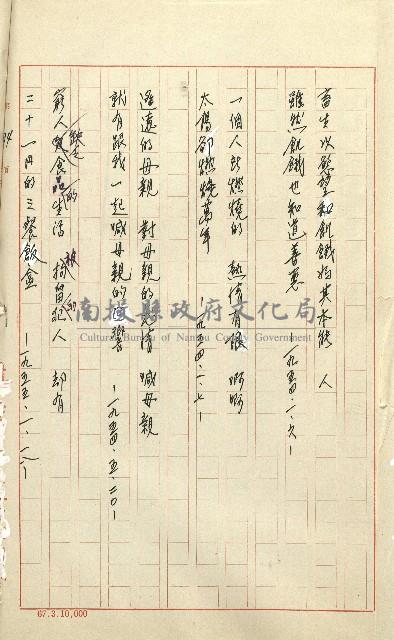 畜生以慾望和飢餓為其本能 人
雖然飢餓也知道善惡
—一九五四.一.六—
一個人所燃燒的 熱情有限 啊啊
太陽卻燃燒萬年
—一九五四.一.七—
遙遠的母親 對母親的 喊母親
就有跟我一起喊母親的迴響
—一九五四.五.二○—
窮人缺乏食品的生活 拘留犯人 却有
二十一円的三餐飯盒
—一九五五.一.一八—
南投縣政府文化局
Cultural Bureau of Nantou County Government
67.3.10,000